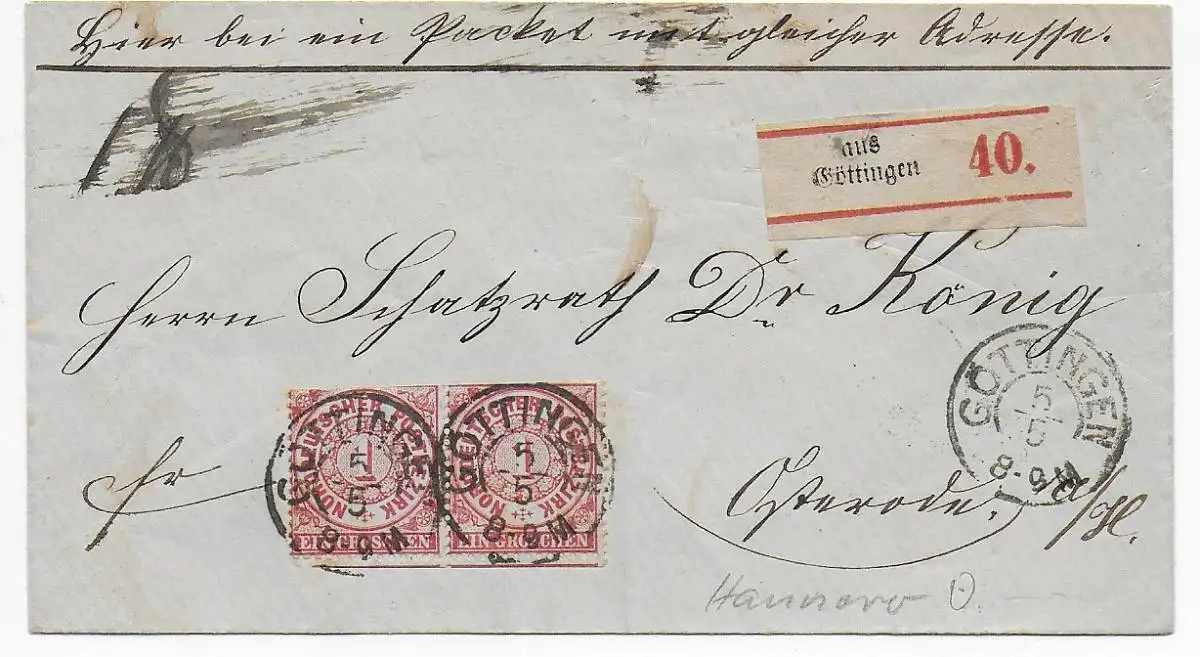 Hier bei ein Packet mit gleicher Adresse.
aus
Göttingen
40.
Herrn Schatzrath Dr König
GÖTTINGEN
5
5
8-9 M
fr
NORDDEUTSCHER POSTBEZIRK
1
EIN GROSCHEN
GÖTTINGEN
5
5
8-9 M
NORDDEUTSCHER POSTBEZIRK
1
EIN GROSCHEN
GÖTTINGEN
5
5
8-9 M
Osterode a/H.
Hannover